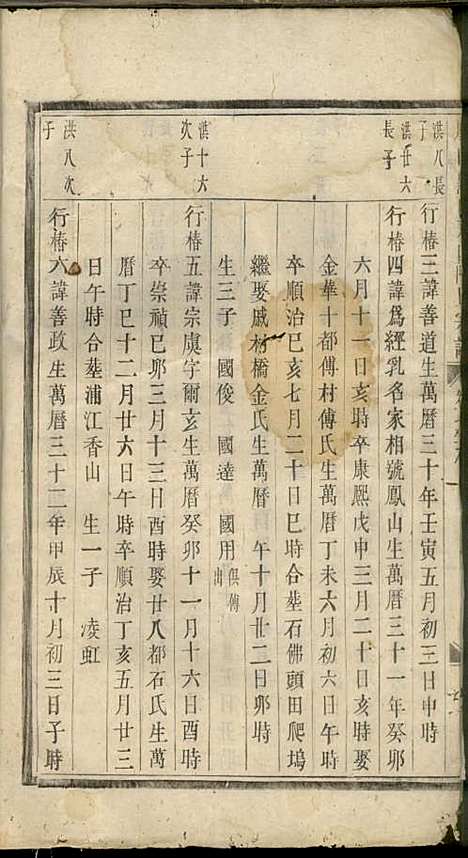 洪八長子
行椿三諱善道生萬曆三十年壬寅五月初三日申時
洪廿六長子
行椿四諱爲經乳名家相號鳳山生萬曆三十一年癸卯
六月十一日亥時卒康熙戊申三月二十日亥時娶
金華十都傅村傅氏生萬曆丁未六月初六日午時
卒順治己亥七月二十日巳時合塟石佛頭田爬塢
繼娶戚村橋金氏生萬曆 午十月廿二日卯時
生三子 國俊 國達 國用俱傅出
洪十六次子
行椿五諱宗虞字爾玄生萬曆癸卯十一月十六日酉時
卒崇禎己卯三月十三日酉時娶廿八都石氏生萬
曆丁巳十二月廿六日午時卒順治丁亥五月廿三
日午時合塟浦江香山 生一子 凌虹
洪八次子
行椿六諱善政生萬曆三十二年甲辰十月初三日子時